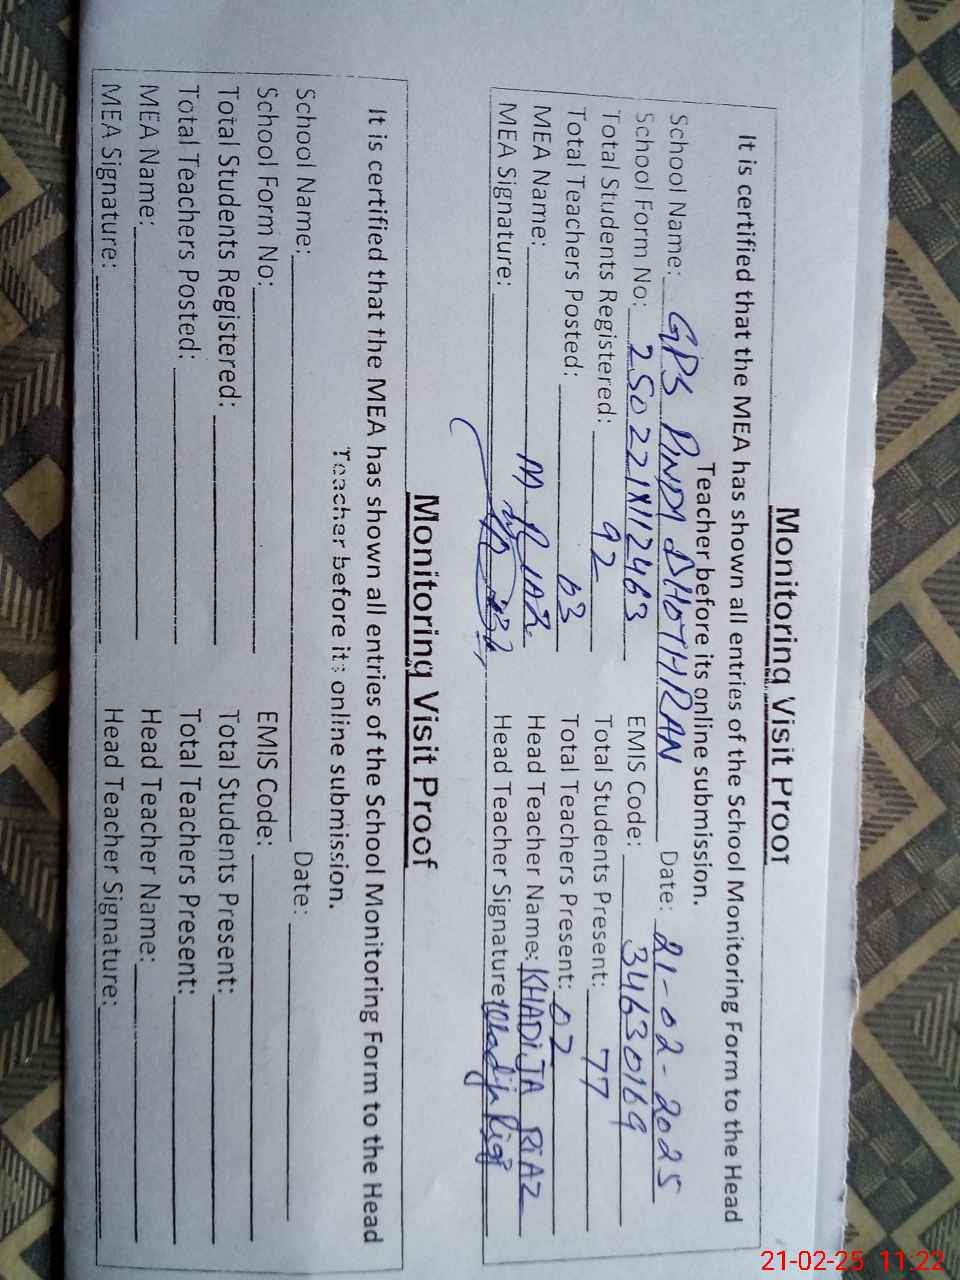 Monitoring Visit Proof
It is certified that the MEA has shown all entries of the School Monitoring Form to the Head
Teacher before its online submission.
School Name: GPS PINDI DHOTHRAN Date: 21-02-2025
School Form No: EMIS Code: 34630169
Total Students Registered: 92 Total Students Present: 77
Total Teachers Posted: 03 Total Teachers Present: 02
MEA Name: M RIAZ Head Teacher Name: KHADIJA RIAZ
MEA Signature: Head Teacher Signature: Khadija Riaz
Monitoring Visit Proof
It is certified that the MEA has shown all entries of the School Monitoring Form to the Head
Teacher before its online submission.
School Name: Date:
School Form No: EMIS Code:
Total Students Registered: Total Students Present:
Total Teachers Posted: Total Teachers Present:
MEA Name: Head Teacher Name:
MEA Signature: Head Teacher Signature:
21-02-25 11:22